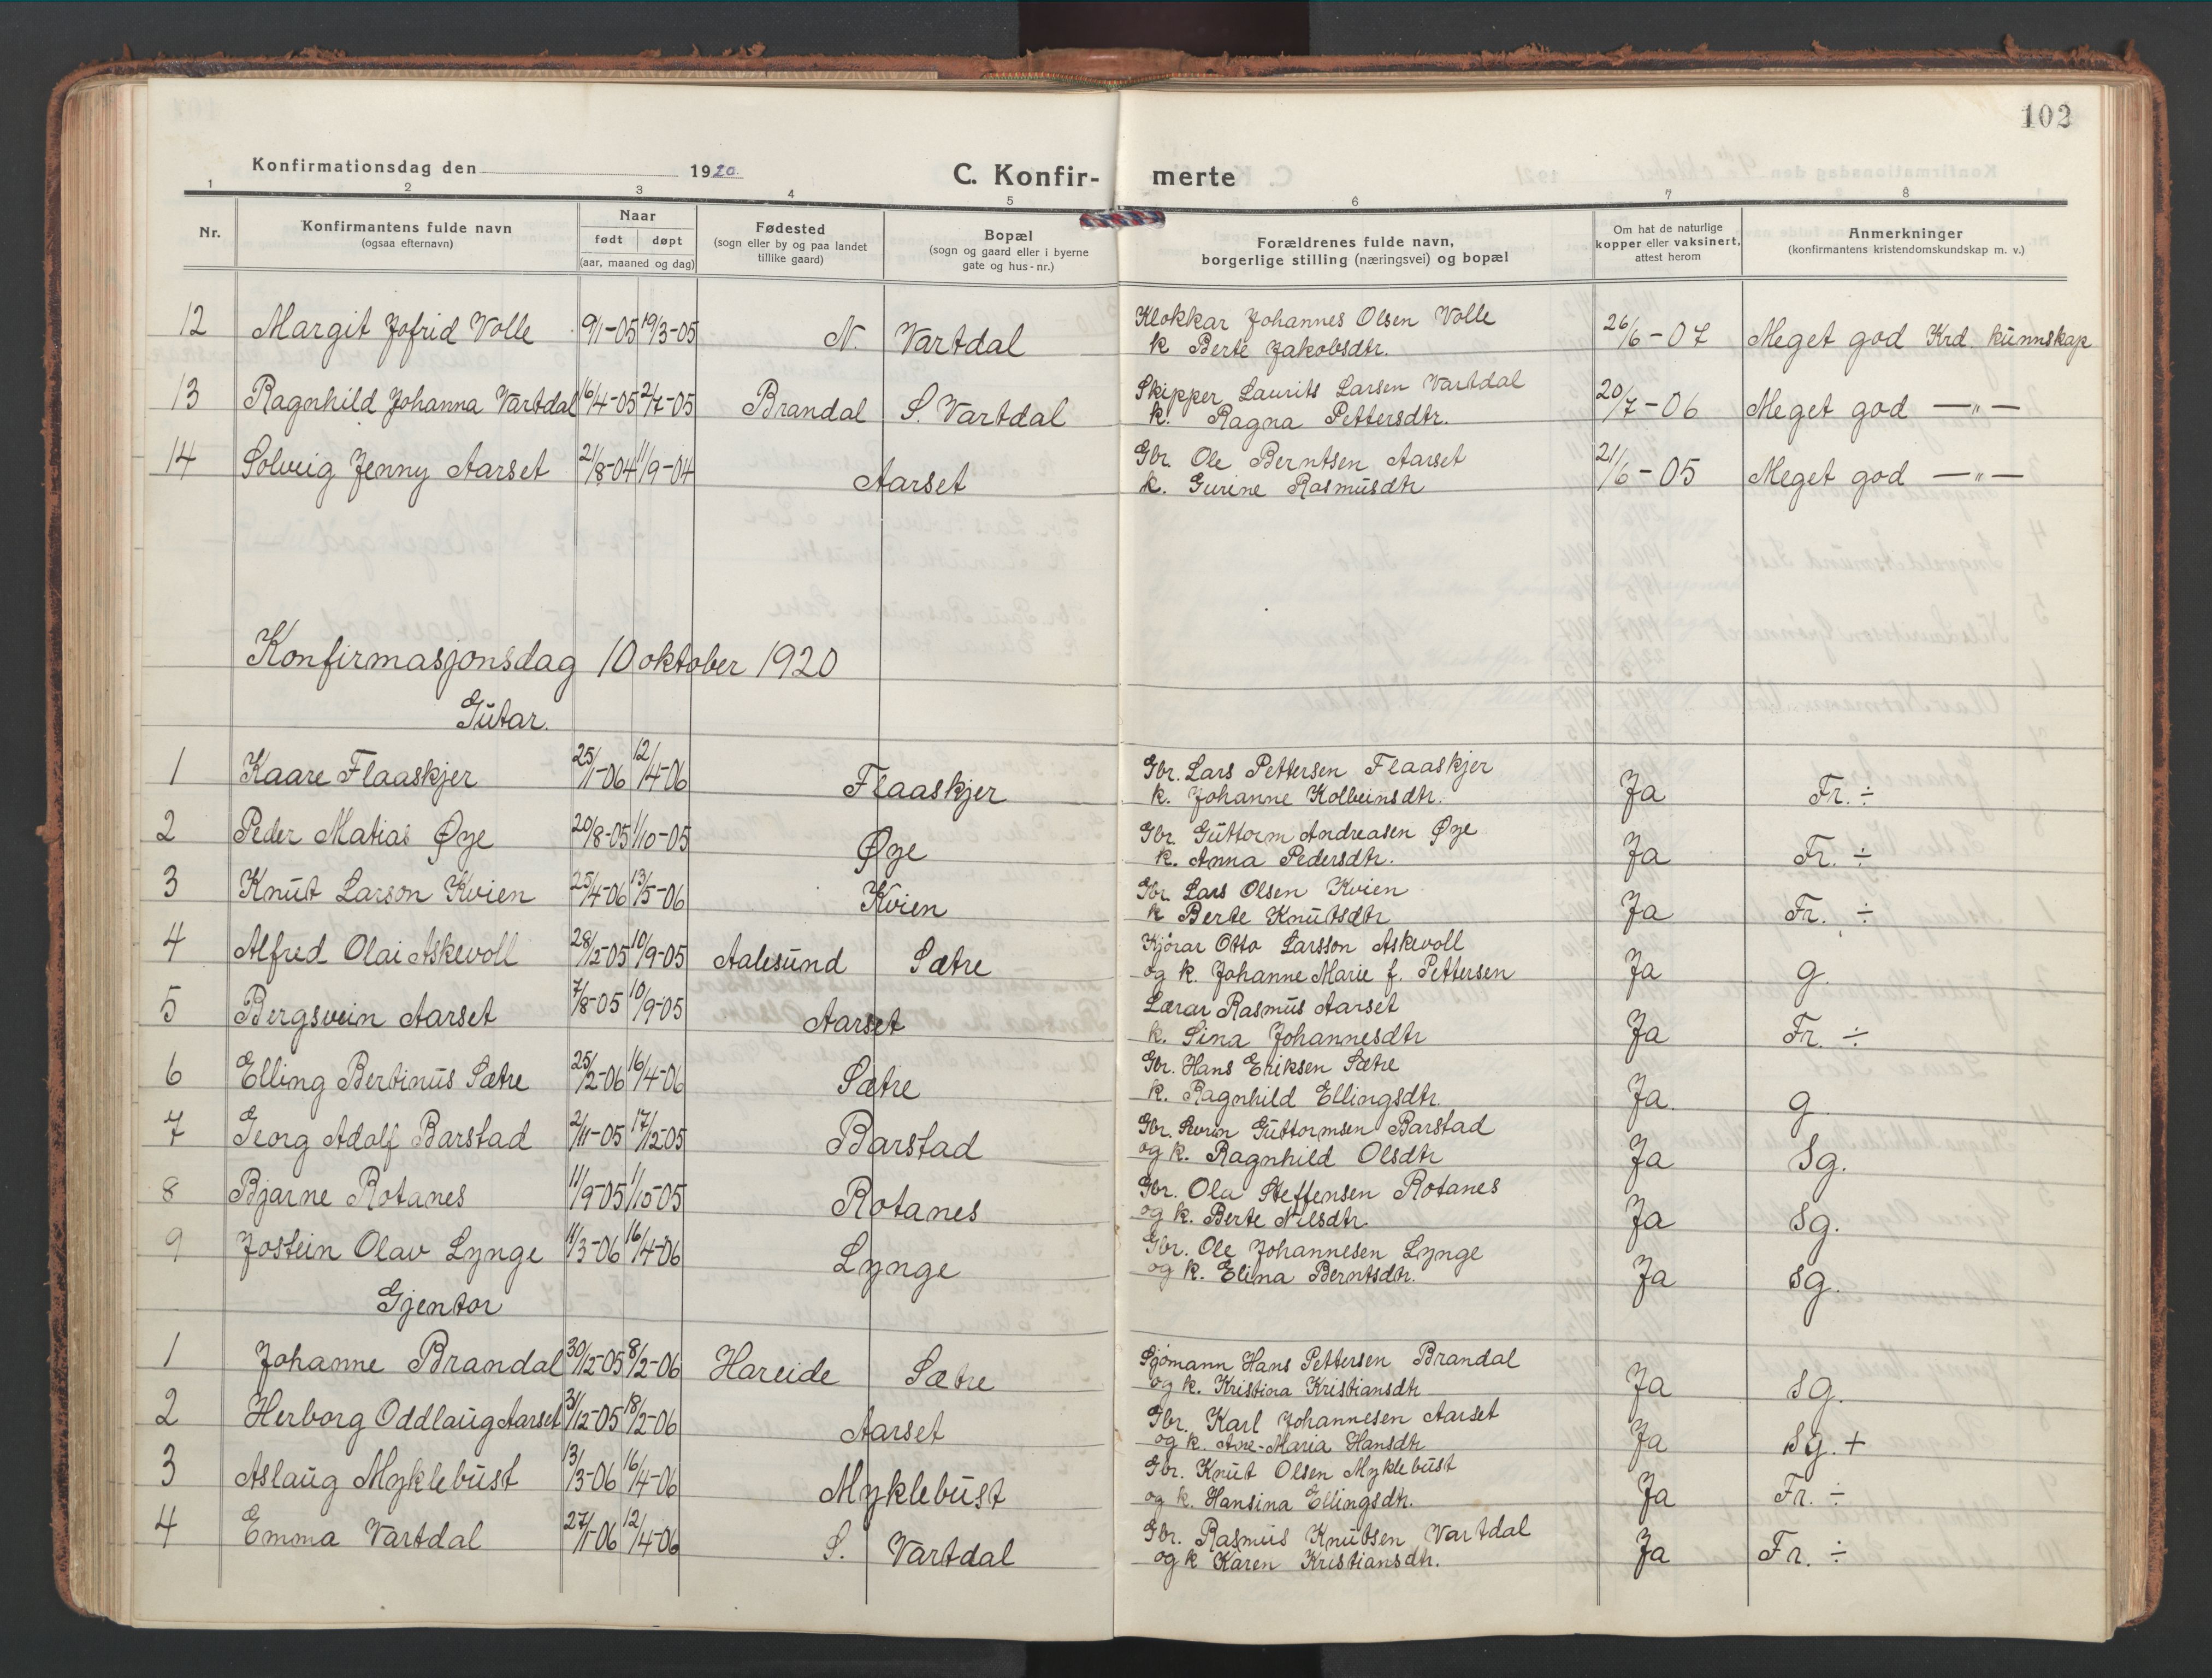 102
Konfirmationsdag den 1920. C. Konfirmerte
1 2 3 4 5 6 7 8
Nr. Konfirmantens fulde navn (ogsaa efternavn) Naar født døpt (aar, maaned og dag) Fødested (sogn eller by og paa landet tillike gaard) Bopæl (sogn og gaard eller i byerne gate og hus-nr.) Forældrenes fulde navn, borgerlige stilling (næringsvei) og bopæl Om hat de naturlige kopper eller vaksinert, attest herom Anmerkninger (konfirmantens kristendomskundskap m. v.)
12 Margit Jofrid Volle 9/1-05 19/3-05 N. Vartdal Klokkar Johannes Olsen Volle 26/6-07 Meget god Krd. kunnskap
k Berte Jakobsdtr.
13 Ragnhild Johanna Vartdal 16/4-05 2/7-05 Brandal S. Vartdal Skipper Laurits Larsen Vartdal 20/7-06 Meget god —"—
k. Ragna Pettersdtr.
14 Solveig Jenny Aarset 2/8-04 11/9-04 Aarset Gbr. Ole Berntsen Aarset 21/6-05 Meget god —"—
k. Gurine Rasmusdtr
Konfirmasjonsdag 10 oktober 1920
Gutar.
1 Kaare Flaaskjer 25/1-06 12/4-06 Flaaskjer Gbr. Lars Pettersen Flaaskjer Ja Fr. ÷
k. Johanne Kolbeinsdtr.
2 Peder Matias Øye 20/8-05 1/10-05 Øye Gbr. Guttorm Andreasen Øye Ja Fr. ÷
k. Anna Pedersdtr.
3 Knut Larson Kvien 25/4-06 13/5-06 Kvien Gbr. Lars Olsen Kvien Ja Fr. ÷
k Berte Knutsdtr
4 Alfred Olai Askevoll 28/2-05 10/9-05 Aalesund Sætre Kjørar Otto Larsson Askevoll Ja g.
og k. Johanne Marie f. Pettersen
5 Bergsvein Aarset 7/8-05 10/9-05 Aarset Lærar Rasmus Aarset Ja Fr. ÷
k. Sina Johannesdtr
6 Elling Bertinus Sætre 25/2-06 16/4-06 Sætre Gbr. Hans Eriksen Sætre Ja. g.
k. Ragnhild Ellingsdtr.
7 Georg Adolf Barstad 2/11-05 17/12-05 Barstad Gbr. Guttormsen Barstad Ja Sg.
og k. Ragnhild Olsdtr
8 Bjarne Rotanes 11/9-05 1/10-05 Rotanes Gbr. Ola Steffensen Rotanes Ja Sg.
og k. Berte Nilsdtr.
9 Jostein Olav Lynge 11/3-06 16/4-06 Lynge Gbr. Ole Johannesen Lynge Ja Sg.
og k. Elina Berntsdtr.
Gjentor
1 Johanne Brandal 30/12-05 8/2-06 Hareide Sætre Sjømann Hans Pettersen Brandal Ja Sg.
og k. Kristina Kristiansdtr
2 Herborg Oddlaug Aarset 31/12-05 18/2-06 Aarset Gbr. Karl Johannesen Aarset Ja Sg. +
og k. Ane-Maria Hansdtr
3 Aslaug Myklebust 13/3-06 16/4-06 Myklebust Gbr. Knut Olsen Myklebust Ja Fr. ÷
og k. Hansina Ellingsdtr.
4 Emma Vartdal 27/1-06 12/4-06 S. Vartdal Gbr. Rasmus Knutsen Vartdal Ja Fr. ÷
og k Karen Kristiansdtr.